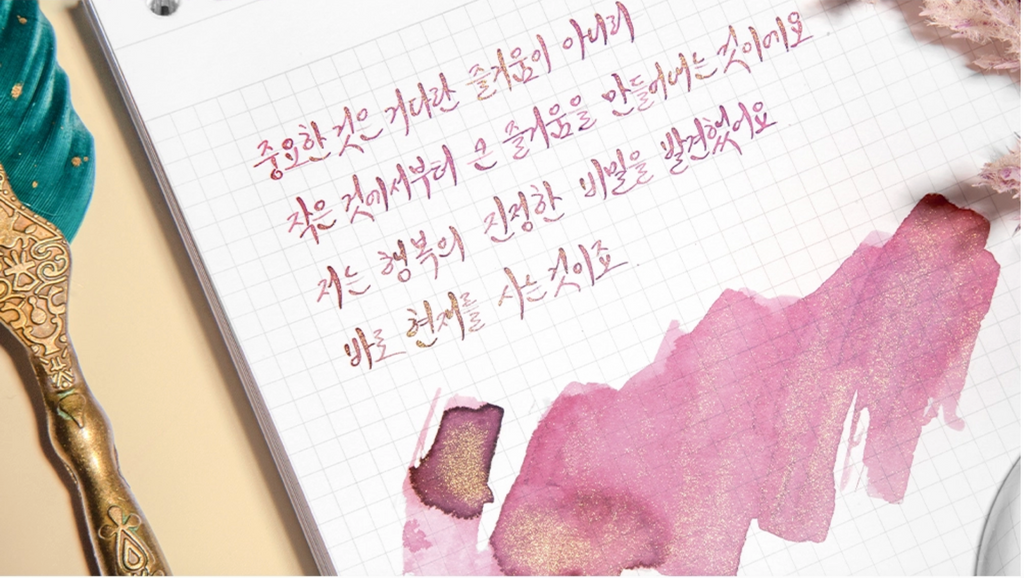 중요한 것은 거다란 즐거움이 아니라
작은 것에서부터 큰 즐거움을 만들어내는 것이에요
저는 행복의 진정한 비밀을 발견했어요
바로 현재를 사는 것이죠